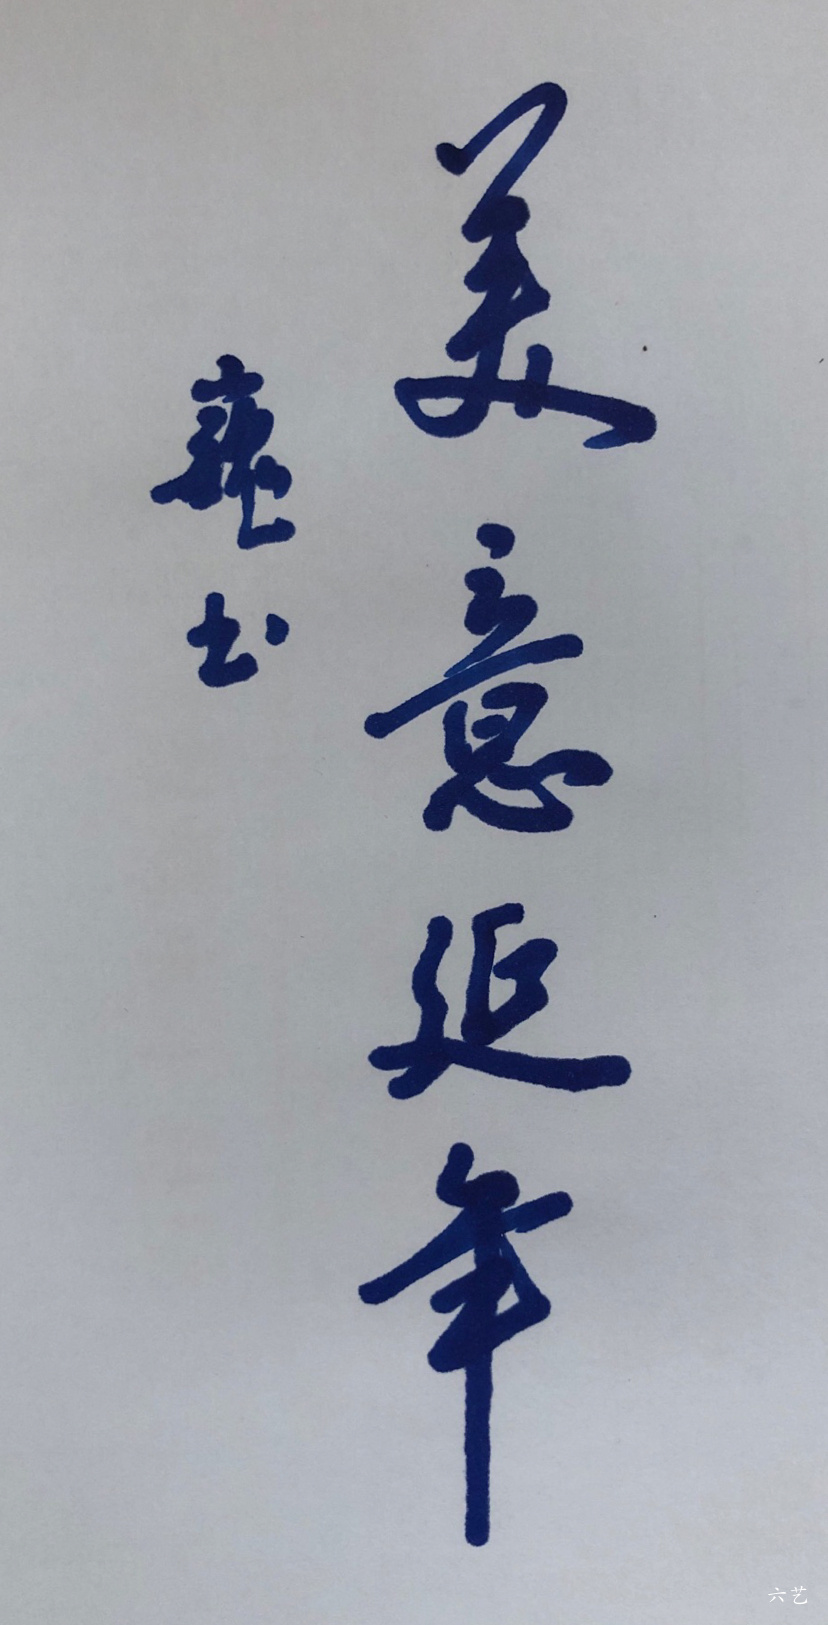 美意延年
书
六艺